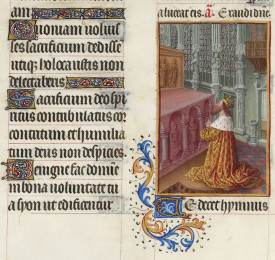 am.
Quoniam voluis
ses sacrificium dedisse
utiq; holocaustis non
delectaberis
Sacrificium deo spi
ritus contribulatus cor
contritum et humilia
tum deus non despicies.
Benigne fac domine
in bona voluntate tu
a syon ut edificentur
a luceat eis. a. Exaudi dne
Te decet hymnus